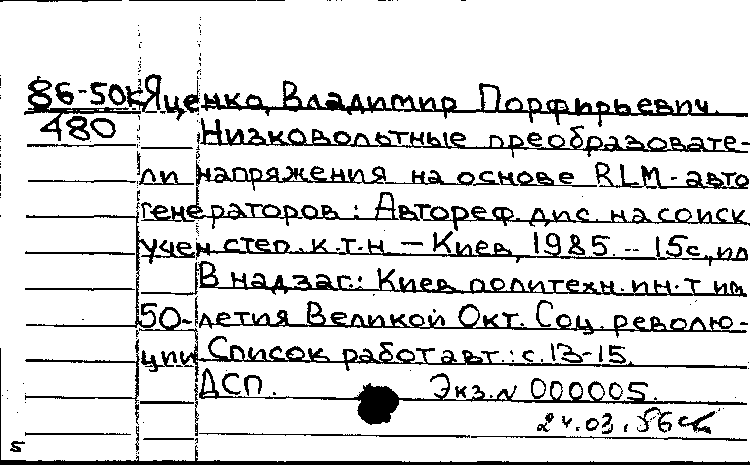 86-50к Яценко, Владимир Порфирьевич.
480 Низковольтные преобразовате-
ли напряжения на основе RLM-авто
генераторов: Автореф дис. на соиск
учен степ. к.т.н — Киев, 1985 - 15с, ил
В надзаг.: Киев политехн. ин-т им
50-летия Великой Окт. Соц револю-
ции Список работ авт.: с. 13-15.
ДСП. Экз. N 000005.
24.03.86
5